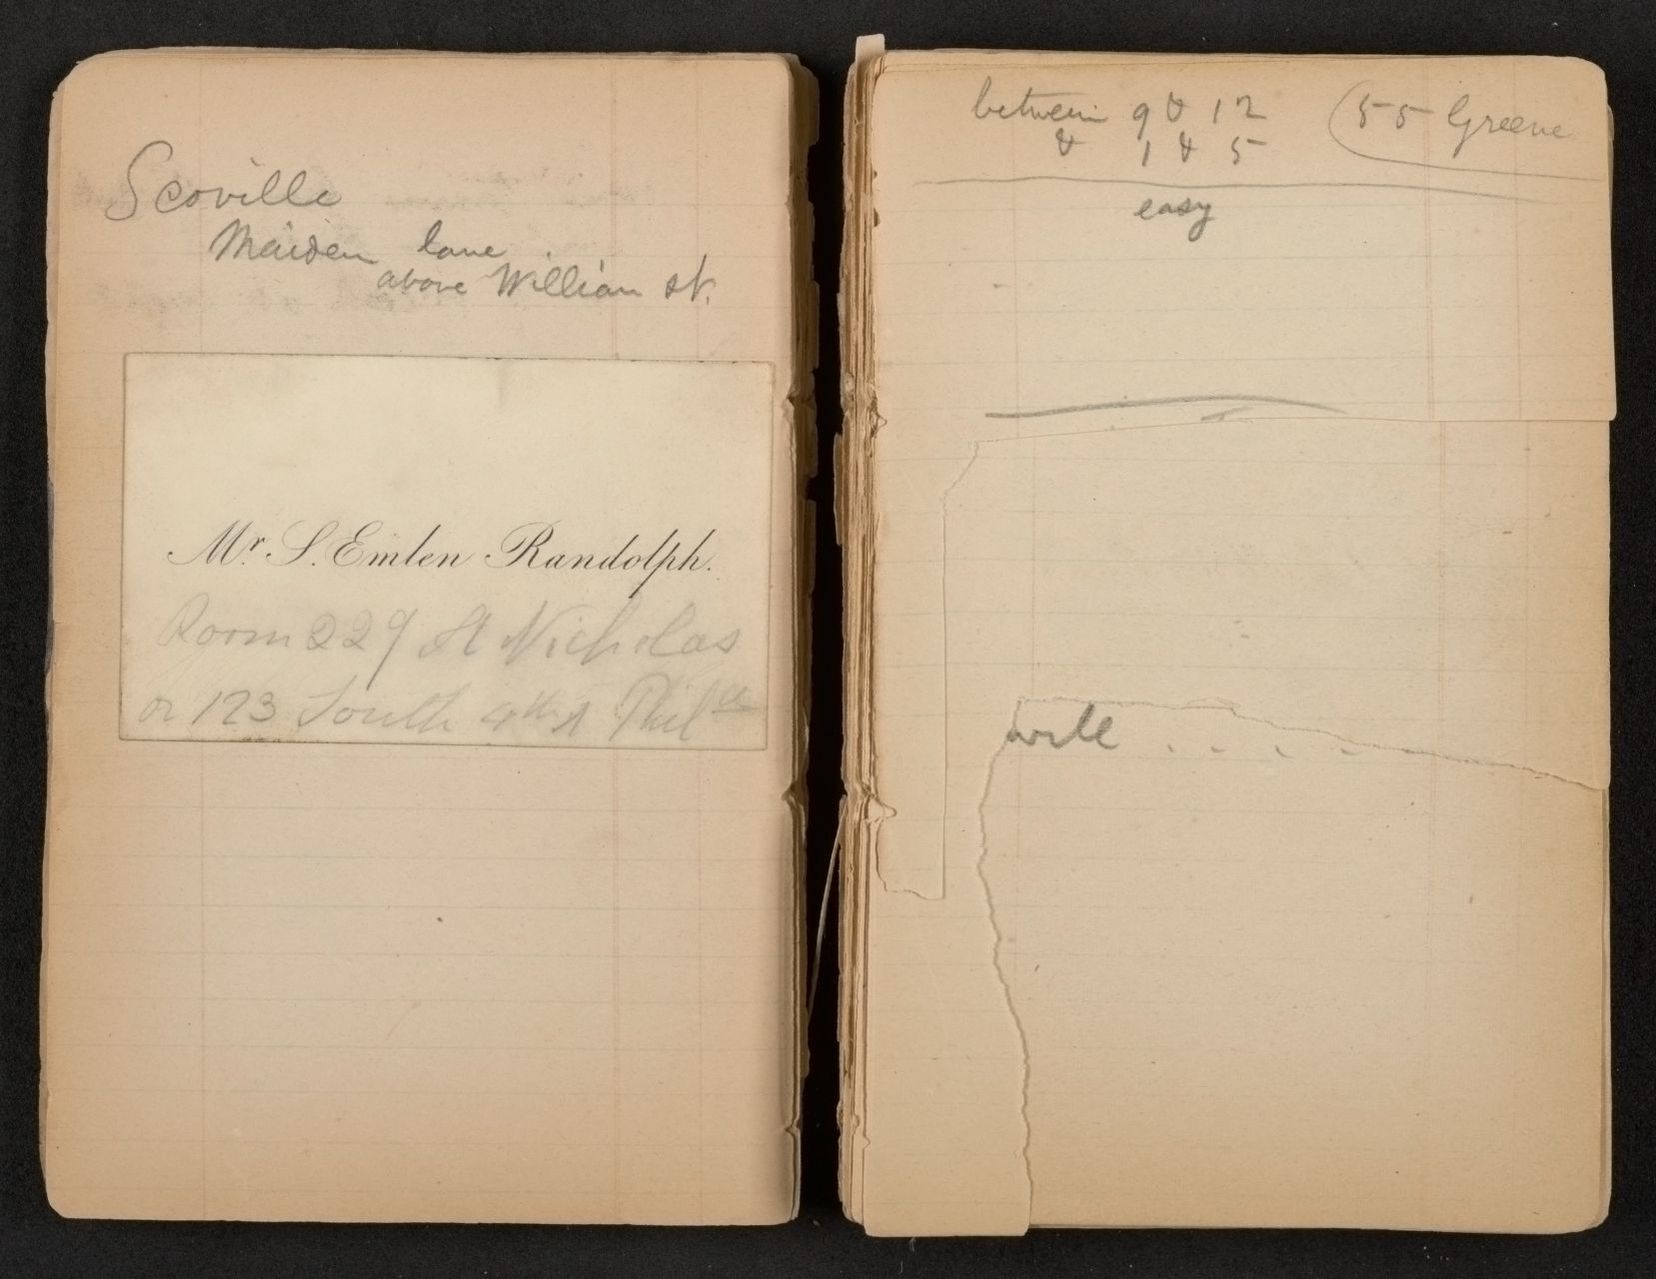 Scoville
Maiden lane
above William st.
Mr. S. Emlen Randolph.
Room 229 St Nicholas
or 123 South 4th st Phila
between 9 & 12 (55 Greene
& 1 & 5
easy
will . . . .